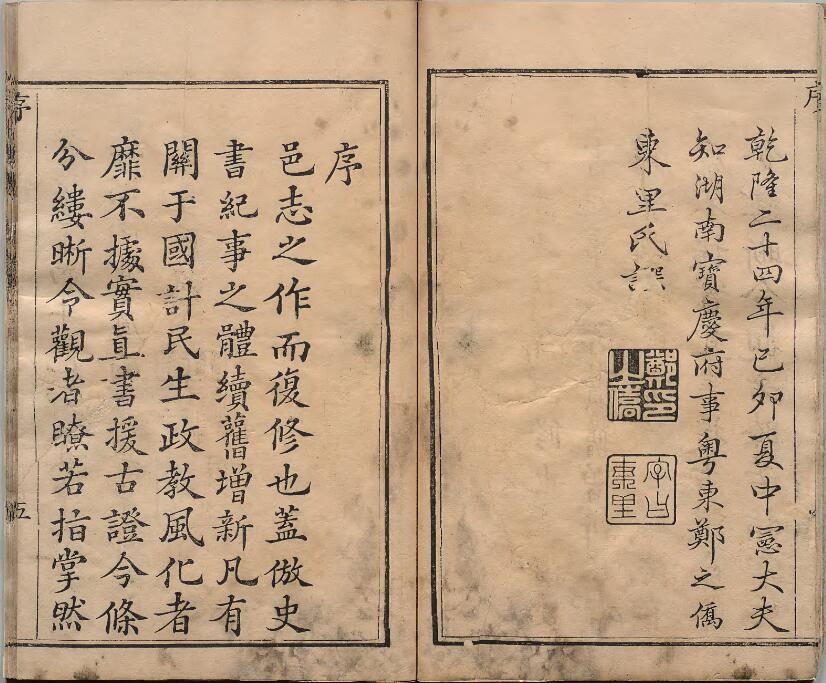 序
乾隆二十四年己卯夏中憲大夫
知湖南寶慶府事粵東鄭之僑
東里氏譔
鄭印
之僑
字曰
東里
序
邑志之作而復修也蓋倣史
書紀事之體續舊增新凡有
關于國計民生政教風化者
靡不據實直書援古證今條
分縷晰令觀者瞭若指掌然
序
五